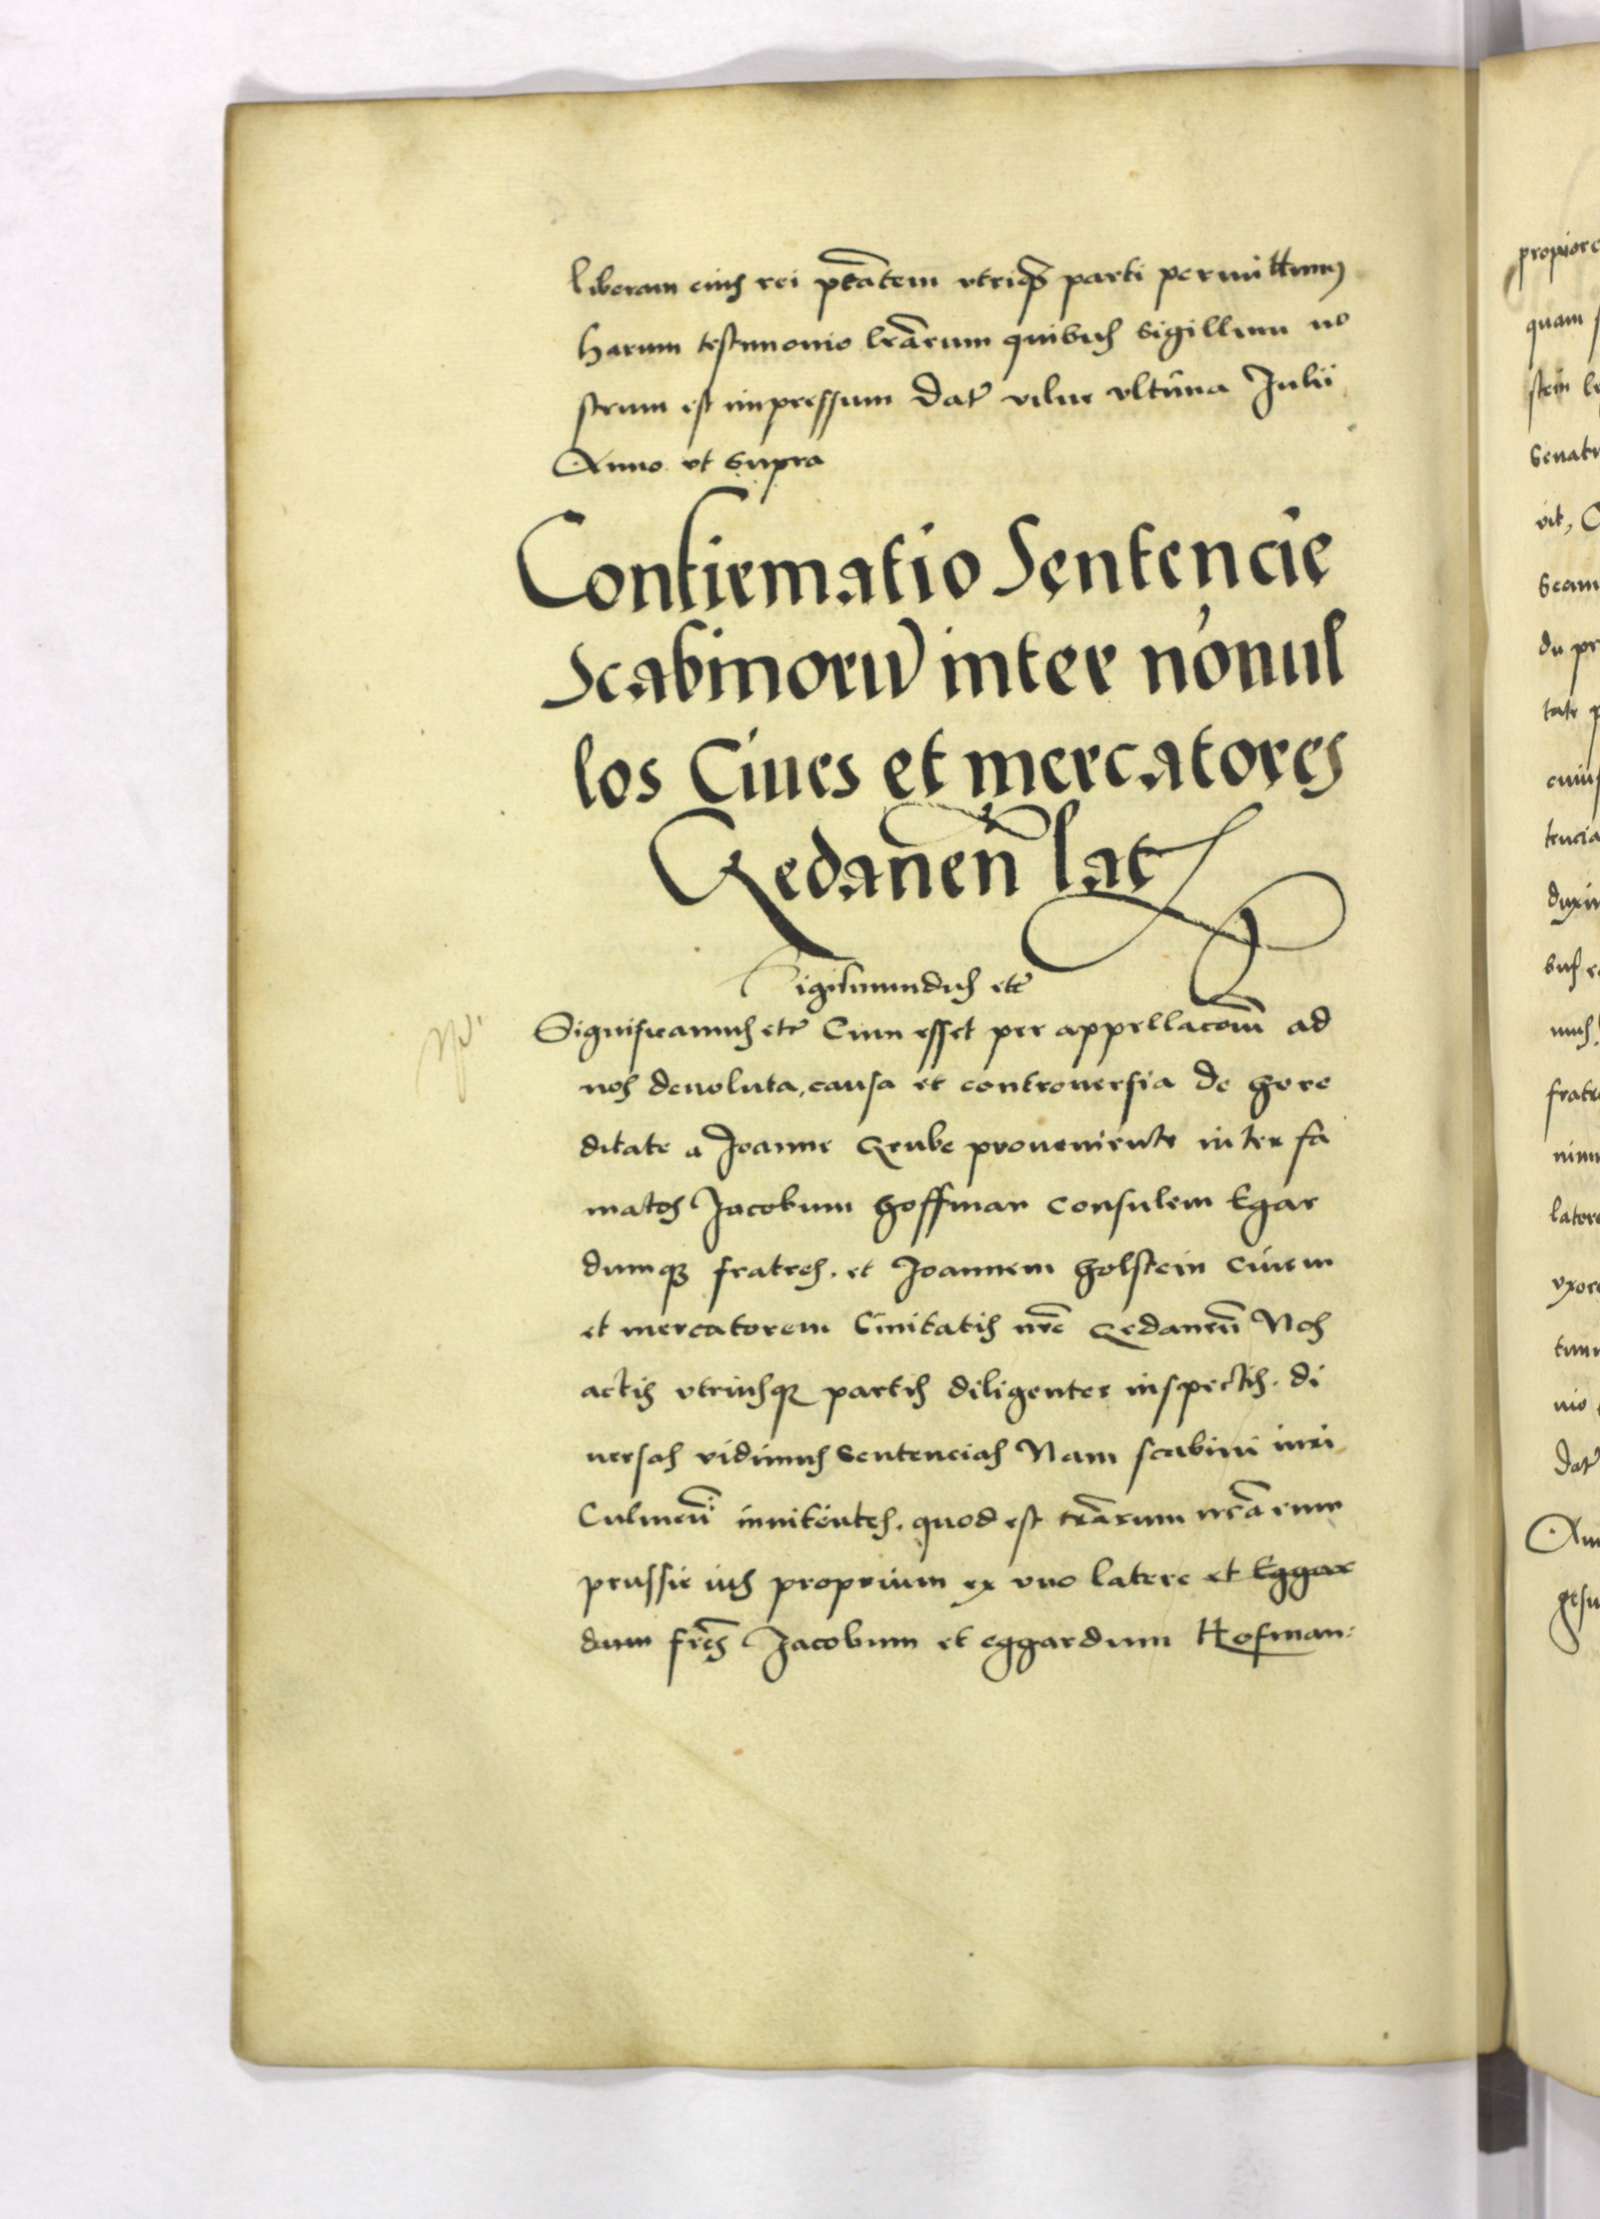 liberam eius rei ptãtem vtriqз parti permittimus
harum testimonio lrãrum quibus Sigillum no
strum est impressum Dat̃ vilne vltima Julii
Anno vt Supra
Confirmatio Sentencie
Scabinorũ inter nõnul
los Ciues et mercatores
Gedaneñ lat
Sigismundus etc̃
Significamus etc̃ Cum esset per appellacom̃ ad
nos deuoluta, causa et controuersia de here
ditate a Joanne Grube proueniente inter fa
matos Jacobum Hoffman Consulem Egar
dumqз fratres. et Joannem Holstein Ciuem
et mercatorem Ciuitatis nr̃e Gedaneñ Nos
actis vtriusqз partis diligenter inspectis. di
uersas vidimus Sentencias Nam scabini iuri
Culmeñ innitentes. quod est terrãrum nrãrum
prussie ius proprium ex vno latere et Eggar
dum fr̃es Jacobum et eggardum Hofman: